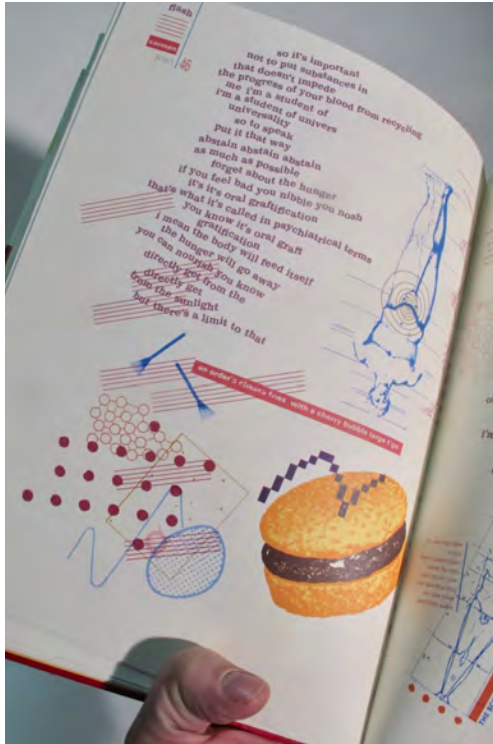 flash
carmen
46
so it's important
not to put substances in
that doesn't impede
the progress of your blood from recycling
me i'm a student of
i'm a student of univers
universality
so to speak
put it that way
abstain abstain abstain
as much as possible
forget about the hunger
if you feel bad you nibble you nosh
it's it's oral graftification
that's what it's called in psychiatrical terms
you know it's oral graft
gratification
i mean the body will feed itself
the hunger will go away
you can nourish you know
directly get from the
directly get
from the sunlight
but there's a limit to that
with a cherry bubble large t go